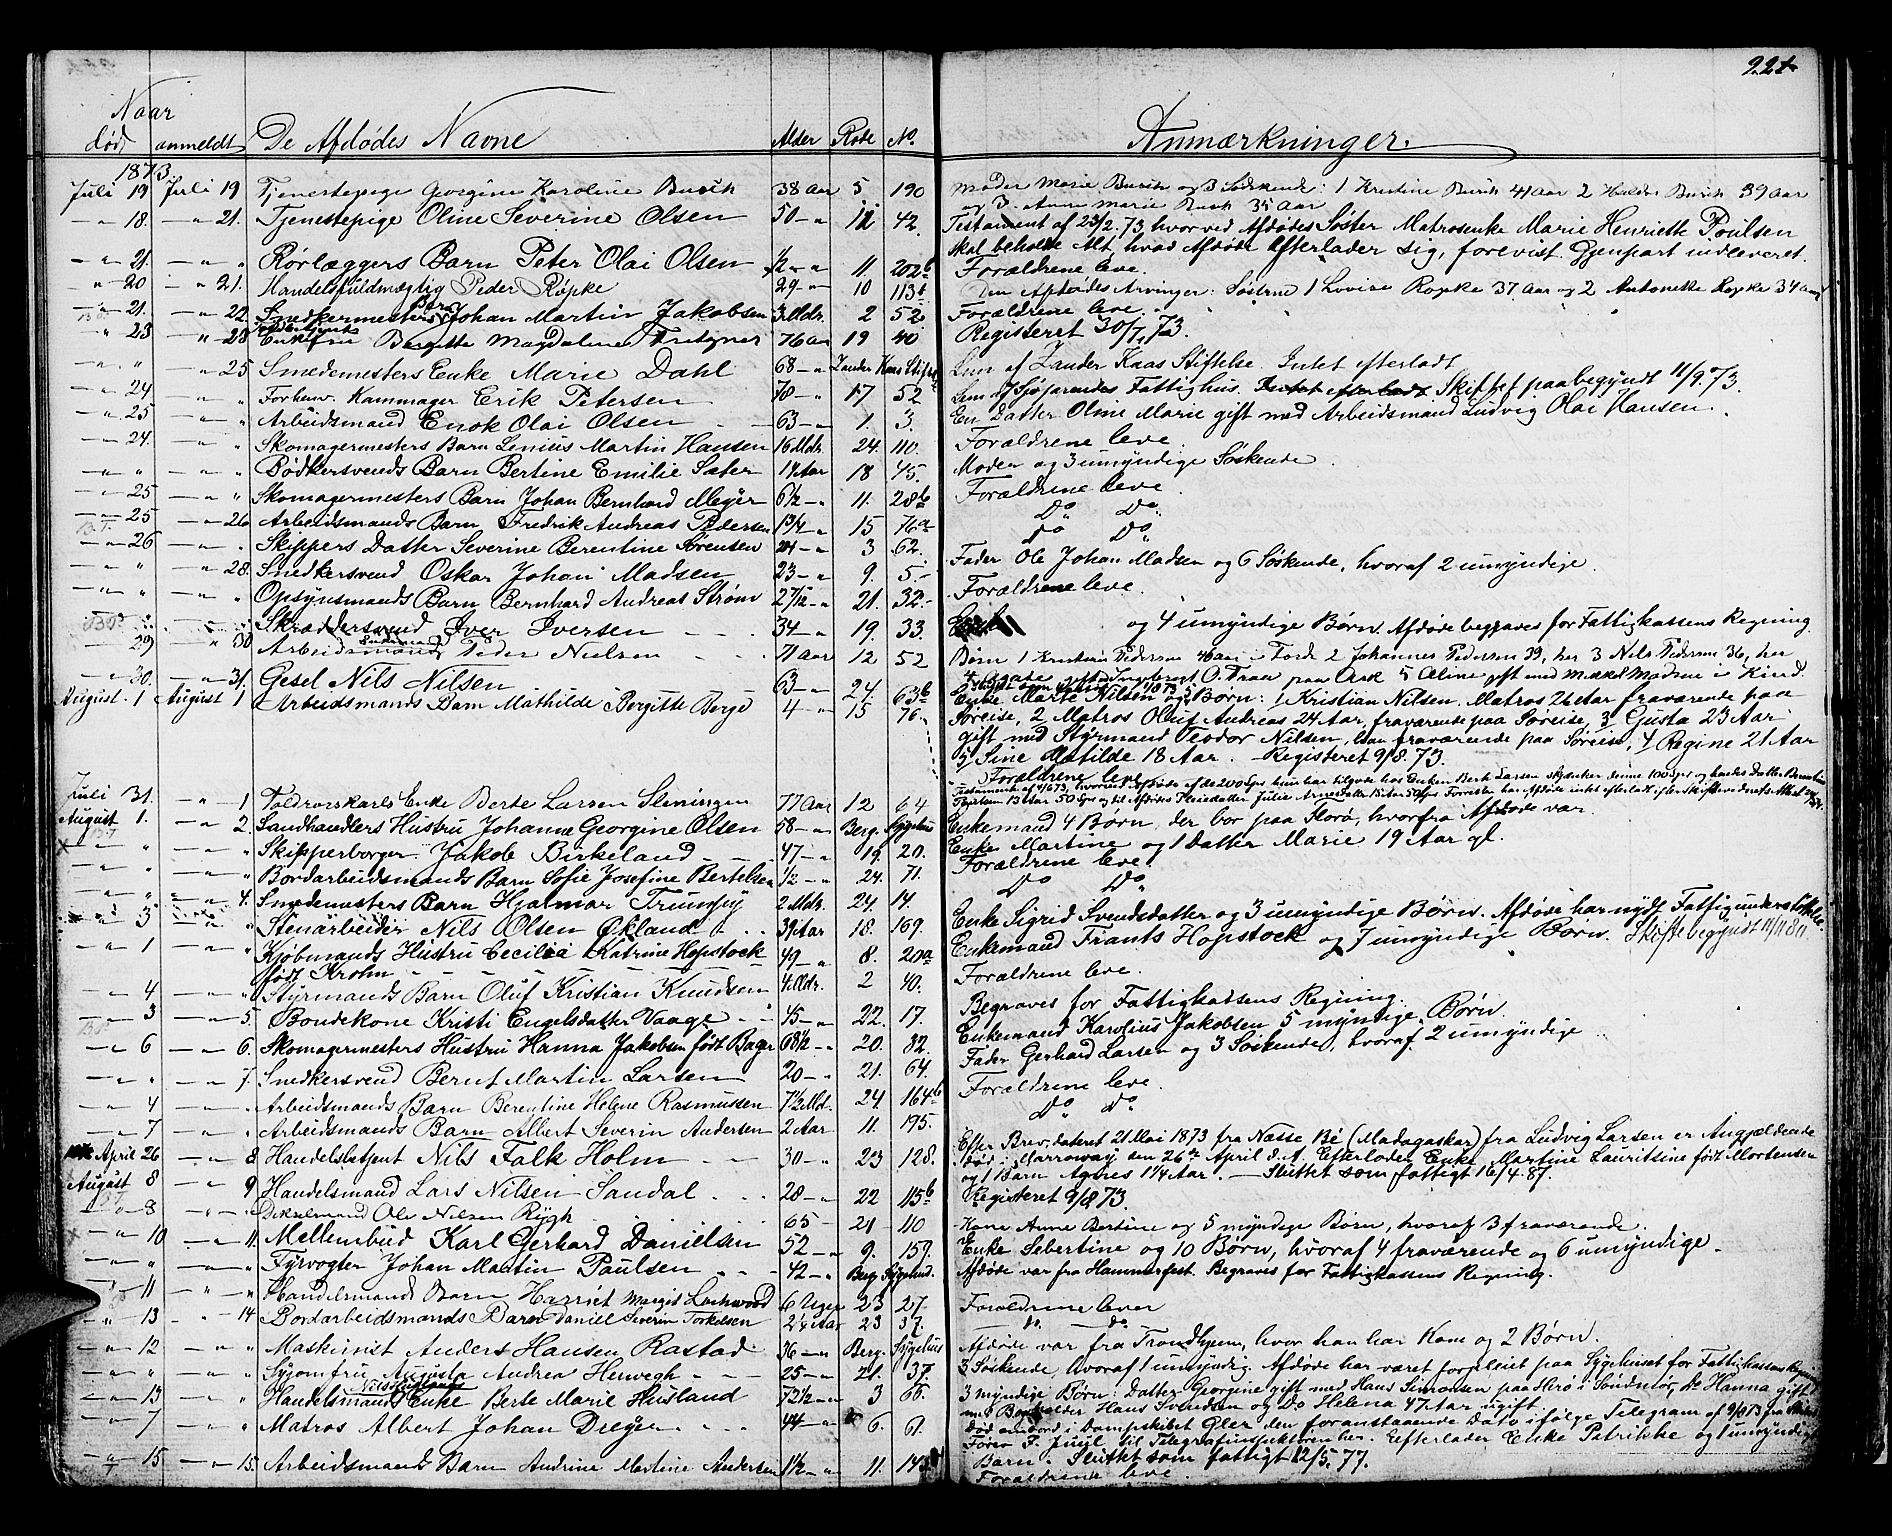 221
Naar
død anmeldt De Afdødes Navne Alder Rode No. Anmærkninger.
1873.
Juli 19 Juli 19 Tjenestepige Georgine Karoline Busch 38 Aar 5 190 Moder Marie og 3 Sødskende: 1 Kristine 41 Aar 2 39 Aar
og 3. Anne Marie 35 Aar
" 18. " 21. Tjenestepige Oline Severine Olsen 50 " 12 42. Testament af 23/2.73, hvorved Afdødes Søster Matrosenke Marie Henriette Poulsen
skal beholde Alt, hvad Afdøde Efterlader sig, forevist. Gjenpart indleveret.
" 21. " " Rørlæggers Barn Peter Olai Olsen 1/2 " " 11. 202b Forældrene leve.
" 20 " 21. Handelsfuldmægtig Peder Röpke 29 " 10 113b Den Afdødes Arvinger: Søstrene 1 Lovise Ropke 37 Aar og 2 Antonette Ropke 34 aar
" 21. " 22. Snedkermesters Barn Johan Martin Jakobsen 3 Mdr. 2 52. Forældrene leve.
" 23 " 23 Enkefru Bergitte Magdalene Fritzner 76 Aar 19 40 Registeret 30/7.73.
" " " 25 Smedemesters Enke Marie Dahl 68 " Zander Kaas Stiftelse Lem af Zander Kaas Stiftelse Intet efterladt
" 24 " " Forhenv. Kammager Erik Petersen 78 " 17 52 Lem af Søfarendes Fattighus. Intet efterladt Skiftet paabegyndt 11/9.73.
" 25 " " Arbeidsmand Enok Olai Olsen 63 " 1. 3. En Datter Oline Marie gift med Arbeidsmand Ludvig Olai Hansen.
" 24. " " Skomagermesters Barn Linius Martin Hansen 16 Mdr. 24. 110. Forældrene leve.
" " " " Bødkersvends Barn Bertine Emilie Sæter 14 Aar 18 45. Moder og 3 umyndige Søskende.
" 25 " " Skomagermesters Barn Johan Bernhard Meyer 6 1/2 " 11. 28b Forældrene leve.
" 25 " 26 Arbeidsmands Barn Fredrik Andreas Pedersen 1 3/4 " 15 76a Do Do
" 26 " " Skippers Datter Severine Berentine Sørensen 24 " 3 62. Do Do
" " " 28. Snedkersvend Oskar Johan Madsen 23 " 9. 5. Fader Ole Johan Madsen og 6 Søskende, hvoraf 2 umyndige.
" " " " Opsynsmands Barn Bernhard Andreas Strøm 2 7/12 " 21. 32. Forældrene leve.
" " " " Skræddersvend Iver Iversen 34 " 19. 33. og 4 umyndige Børn. Afdøde begraves for Fattigkassens Regning.
" 29 " 30 Arbeidsmand Peder Nielsen 71 Aar 12 52 Børn 1 Kristian Pedersen 40 aar i Førde 2 Johannes Pedersen 39, her 3 Nels Pedersen 36, her
" 30. " 31. Gesel Nils Nilsen 63 " 24. 63b Enke Marte Nilsen og 5 Børn: 1 Kristian Nilsen, Matros 26 Aar fraværende paa
August. 1 August 1 Arbeidsmands Barn Mathilde Bergitte Berge 4 " 15 76. Søreise, 2 Matros Oluf Andreas 24 Aar, fraværende paa Søreise, 3 Gusta 23 Aar
gift med Styrmand Teodor Nilsen, han fraværende paa Søreise, 4 Regine 21 Aar
5 Sine Matilde 18 Aar. - Registeret 9/8.73.
Forældrene leve
Juli 31. " 1 Toldrorskarls Enke Berte Larsen Slemingen 77 Aar 12 64
August 1. " 2. Sandhandlers Hustru Johanne Georgine Olsen 58 " Berg. Sygehus Enkemand 4 Børn, der bor paa Florø, hvorfra Afdøde var.
" " " " Skipperborger Jakob Birkeland 47 " 19. 20. Enke Martine og 1 Datter Marie 19 Aar gl.
" " " " Bordarbeidsmands Barn Sofie Josefine Bertelsen 1/2 " 24. 71. Forældrene leve
" " " 4. Smedemesters Barn Hjalmar Trumpy 2 Mdr. 24 14. Do Do
" 3 " " Stenarbeider Nils Olsen Økland 39 Aar 18. 169. Enke Sigrid Svendsdatter og 3 umyndige Børn. Afdøde har nydt Fattigunderstøttelse.
" 1 " " Kjøbmands Hustru Cecilia Katrine Hopstock 49 " 8. 20a Enkemand Frants Hopstock og 7 umyndige Børn. Skifte begyndt 11/11 80.
født Krohn
" 4 " " Styrmands Barn Oluf Kristian Knudsen 4 Mdr. 2 40. Forældrene leve.
" 3 " 5. Bondekone Kristi Engelsdatter Vaage 45 " 22. 17. Begraves for Fattigkassens Regning.
" 6 " 6. Skomagermesters Hustru Hanna Jakobsen født Bager 68 1/2 " 20. 82. Enkemand Karolius Jakobsen 5 myntige Børn.
" " " 7. Snedkersvend Bernt Martin Larsen 20 " 21. 64. Fader Gerhard Larsen og 3 Søskende, hvoraf 2 umyndige
" 4 " " Arbeidsmands Barn Berentine Helene Rasmussen 7 1/2 Md. 24 164b Forældrene leve.
" 7 " " Arbeidsmands Barn Albert Severin Andersen 2 Aar 11. 195. Do Do
April 26 " 8. Handelsbetjent Nils Falk Holm 30 " 23 128. Efter Brev, dateret 21 Mai 1873 fra Nosse Bé (Madagaskar) fra Ludvig Larsen er Angjældende
død i Marroway den 26de April d. A. Efterlader Enke Martine Lauritsine født Mortensen
og 1 Barn Agnes 1 1/4 Aar. - Sluttet som fattigt 16/4.87.
August 8 " 9 Handelsmand Lars Nilsen Sandal 28 " 22 115b Registeret 9/8 73.
" 8 " " Ole Nilsen Rygh 65 " 21 110 Kone Anne Bertine og 5 myndige Børn, hvoraf 3 fraværende.
" 10 " 11. Mellembud Karl Gerhard Danielsen 52 " 9. 159. Enke Sebertine og 10 Børn, hvoraf 4 fraværende og 6 umyndige.
" " " " Fyrvogter Johan Martin Paulsen 42 " Berg. Sygehus. Afdøde var fra Hammerfest. Begraves for Fattigkassens Regning.
" 11 " " Handelsmands Barn Harriet Margit Lockwood 6 Uger 23 27 Forældrene lever
" 13 " 14 Bordarbeidsmands Barn Daniel Severin Torkelsen 2 1/4 Aar 23 37. do. do.
" 12 " " Maskinist Anders Hansen Rastad 36 " Berg. Sygehus Afdøde var fra Trondhjem, hvor han har Kone og 2 Børn.
" " " " Syjomfru Augusta Andrea Henvegh 25 " 21. 37. 3 Søskende, hvoraf 1 umyndig. Afdøde har været forpleiet paa Sygehuset for Fattigkassens Regning
" 13 " " Handelsmands Enke Berte Marie Husland 72 1/2 " 3 66. 3 myndige Børn: Datter Georgine gift med Hans Simonsen paa Herø i Søndmør, Do Hanna gift
med Hans Svendsen og Do Helena 47 Aar ugift.
" 7 " " Matros Albert Johan Dreyer 44 " 6. 61. Død ombord i Dampskibet Gler den foranstaaende Dato ifølge Telegram af 9/8 73 fra
F. Juul til Telegrafinspektøren her. Efterlader Enke Petrikke og 1 umyndigt
Barn. - Sluttet som fattigt 12/5.77.
" 15 " 15. Arbeidsmands Barn Andrine Martine Andersen 1 1/2 " 11. Forældrene leve.